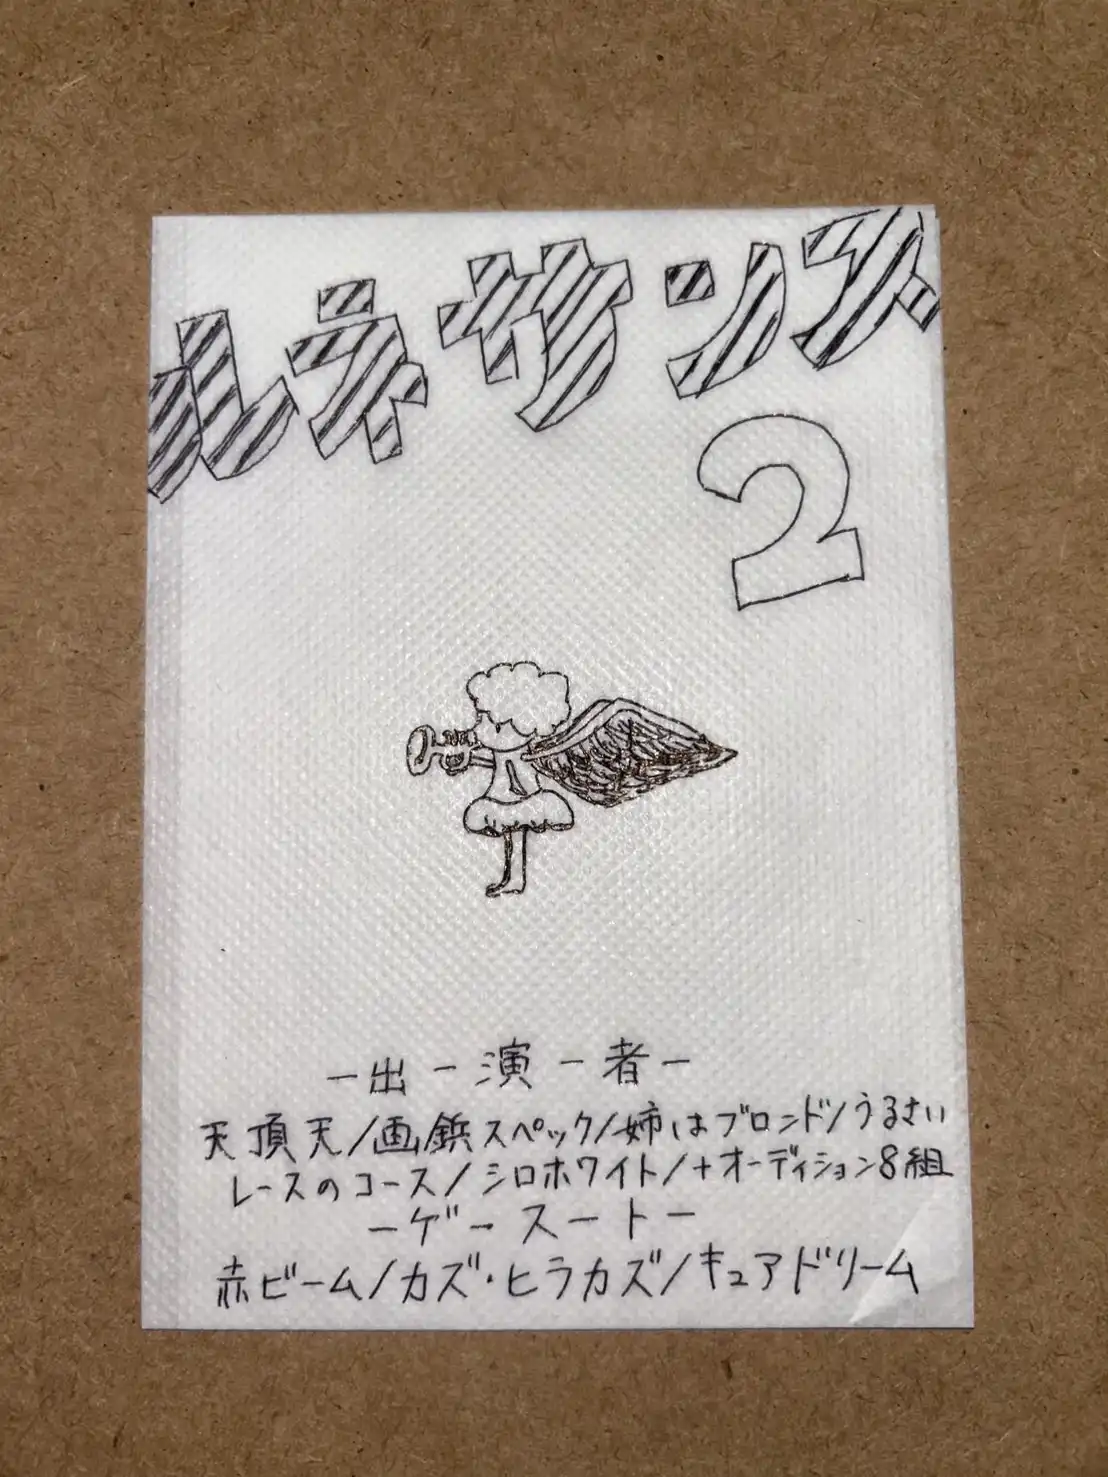 ルネサンス
2
ー出ー演ー者ー
天頂天/画鋲スペック/姉はブロンド/うるさい
レースのコース/シロホワイト/+オーディション8組
ーゲースートー
赤ビーム/カズ・ヒラカズ/キュアドリーム